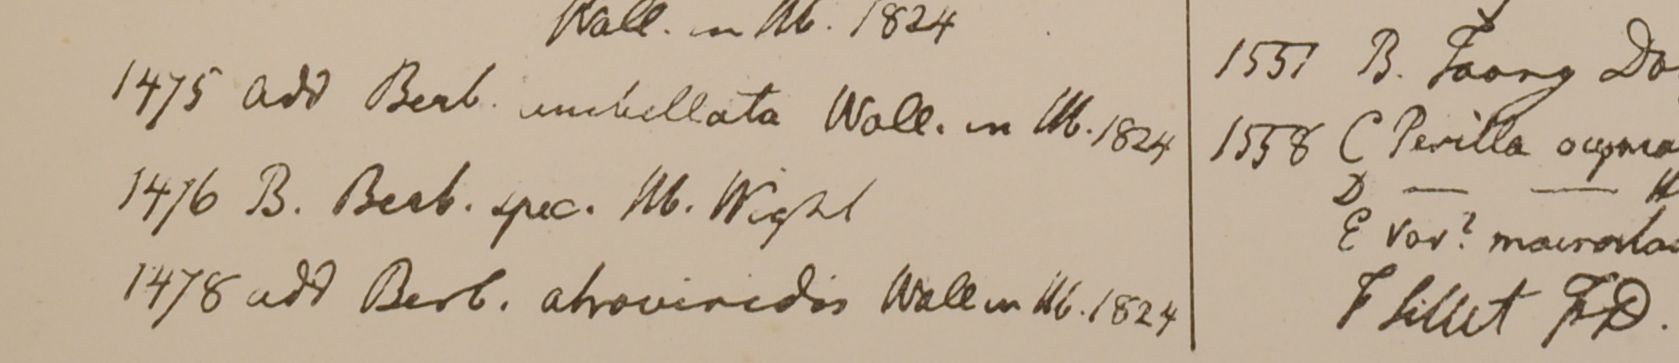 Wall. in Hb. 1824
1475 add Berb. umbellata Wall. in Hb. 1824
1476 B. Berb. spec. Hb. Wight
1478 add Berb. atroviridis Wall in Hb. 1824
1551 B. Taong Do
1558 C Perilla ocyma
D — — H
E var? macrosta
F Sillet FD.